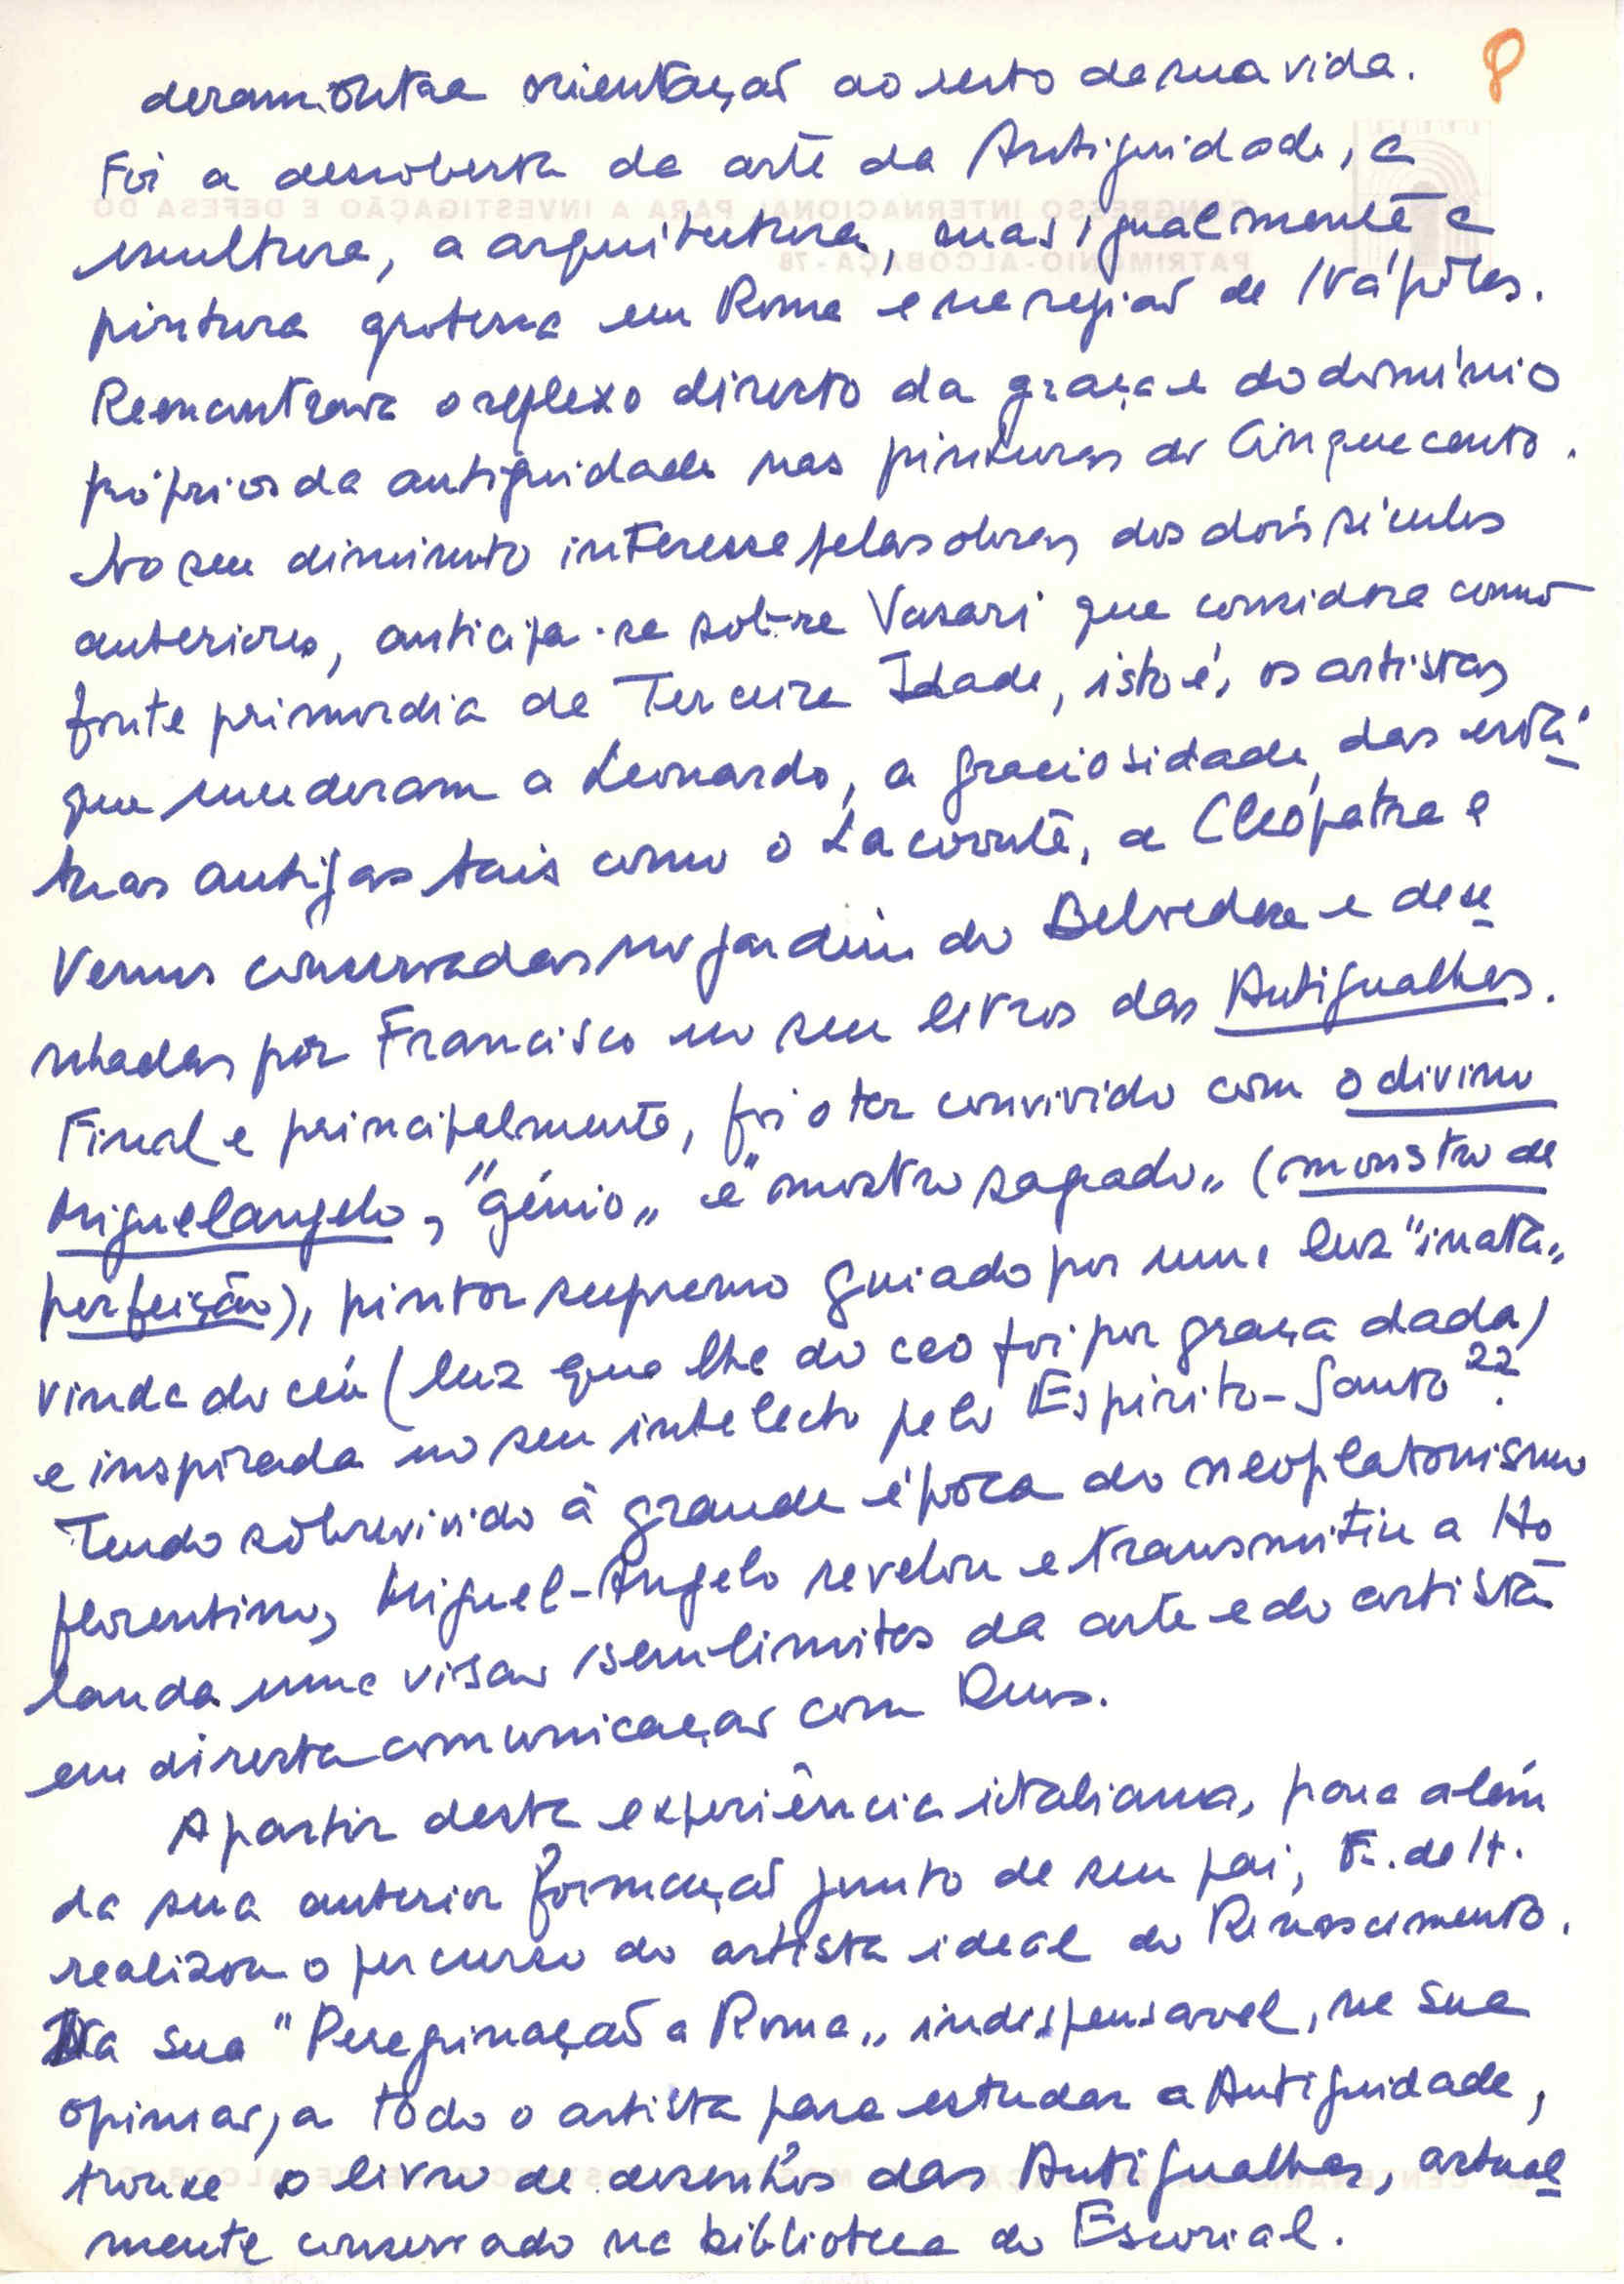 8
deram outra orientação ao resto da sua vida.
Foi a descoberta da arte da Antiguidade, a
escultura, a arquitectura, mas igualmente a
pintura grotesca em Roma e na região de Nápoles.
Reencontrava o reflexo directo da graça e do domínio
próprios da antiguidade nas pinturas do Cinquecento.
No seu diminuto interesse pelas obras dos dois séculos
anteriores, anticipa-se sobre Vasari que considera como
fonte primordia da Terceira Idade, isto é, os artistas
que sucederam a Leonardo, a graciosidade das está-
tuas antigas tais como o Lacoonte, a Cleópatra e
Venus conservadas no jardim do Belvedere e dese
nhadas por Francisco no seu livros das Antigualhas.
Final e principalmente, foi o ter convivido com o divino
Miguelangelo, "génio" e "mostro sagrado" (monstro de
perfeição), pintor supremo guiado por uma luz "inata"
vinda do céu (luz que lhe do ceo foi por graça dada)
e inspirada no seu intelecto pelo Espirito-Santo 22.
Tendo sobrevivido à grande época do neoplatonismo
florentino, Miguel-Angelo revelou e transmitiu a Ho
landa uma visão sem limites da arte e do artista
em directa comunicação com Deus.
A partir desta experiência italiana, para além
da sua anterior formação junto de seu pai, F. de H.
realizou o percurso do artista ideal do Renascimento.
Na sua "Peregrinação a Roma" indispensavel, na sua
opinião, a todo o artista para estudar a Antiguidade,
trouxe o livro de desenhos das Antigualhas, actual
mente conservado na biblioteca do Escorial.
CONGRESSO INTERNACIONAL PARA A INVESTIGAÇÃO E DEFESA DO
PATRIMÓNIO-ALCOBAÇA-78